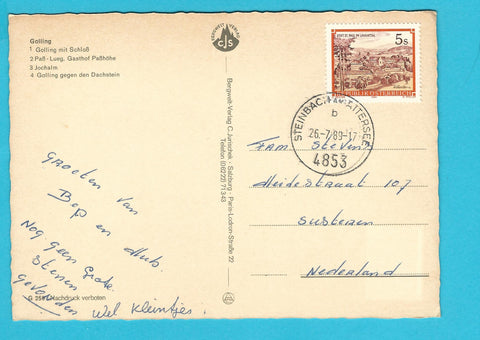 Golling
1 Golling mit Schloß
2 Paß-Lueg. Gasthof Paßhöhe
3 Jochalm
4 Golling gegen den Dachstein
CJS
Bergwelt-Verlag C. Jurischek · Salzburg · Paris-Lodron-Straße 22
Telefon (06222) 71343
5 S
REPUBLIK ÖSTERREICH
STEINBACH AM ATTERSEE
b
26.-7.89-17
4853
Groeten van
Bep en Hub.
Nog geen Grote
Stenen
Gevonden wel kleintjes.
Fam Stevens
Heidestraat 107
Susteren
Nederland
Nachdruck verboten